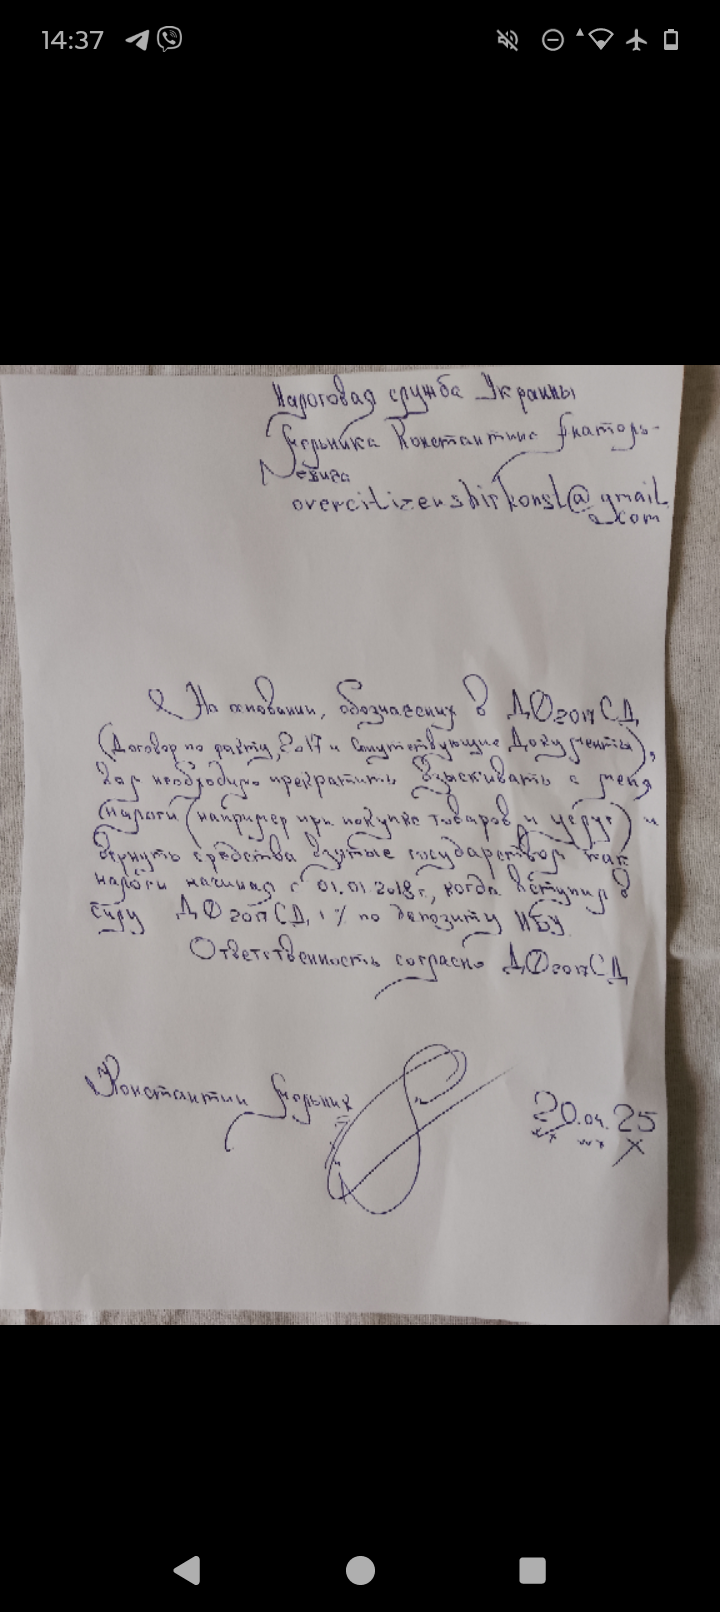 14:37
Налоговая служба Украины
Мельника Константина Анатоль-
евича
overcitizenshipkonst@gmail
.com
На основании, обозначенных в ДФ2017СД
(Договор по факту, 2017 и Сопутствующие Документы),
Вам необходимо прекратить взыскивать с меня
налоги (например при покупке товаров и услуг) и
вернуть средства взятые государством как
налоги начиная с 01.01.2018г., когда вступил в
силу ДФ2017СД, 1% по депозиту НБУ.
Ответственность согласно ДФ2017СД
Константин Мельник
20.04.25